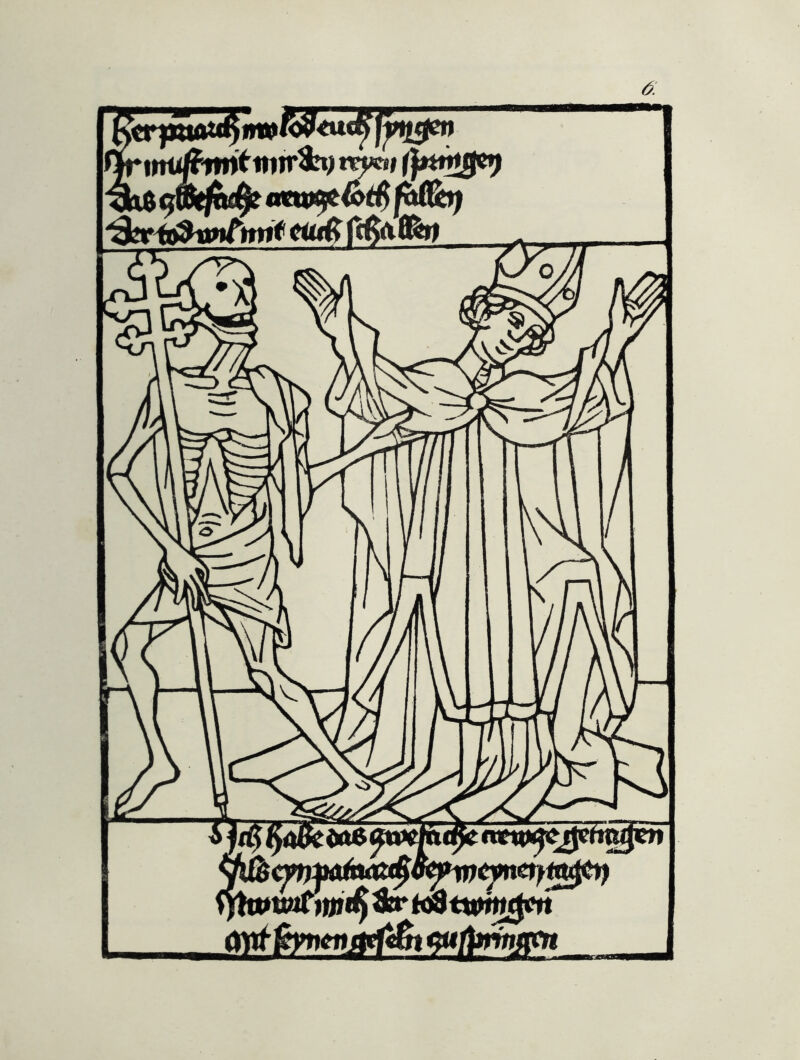 6.
Her patriarch nw euch syngen
Ir must mit mir den reyen springen
Das zwefache crewcze loth fallen
Der tod wil mit euch schallen
Ich habe das zwefache crewcze getragen
Als eyn patriarch bey meynen tagen
Nw wil mich der tod twingen
Mit seynen geseln zu springen